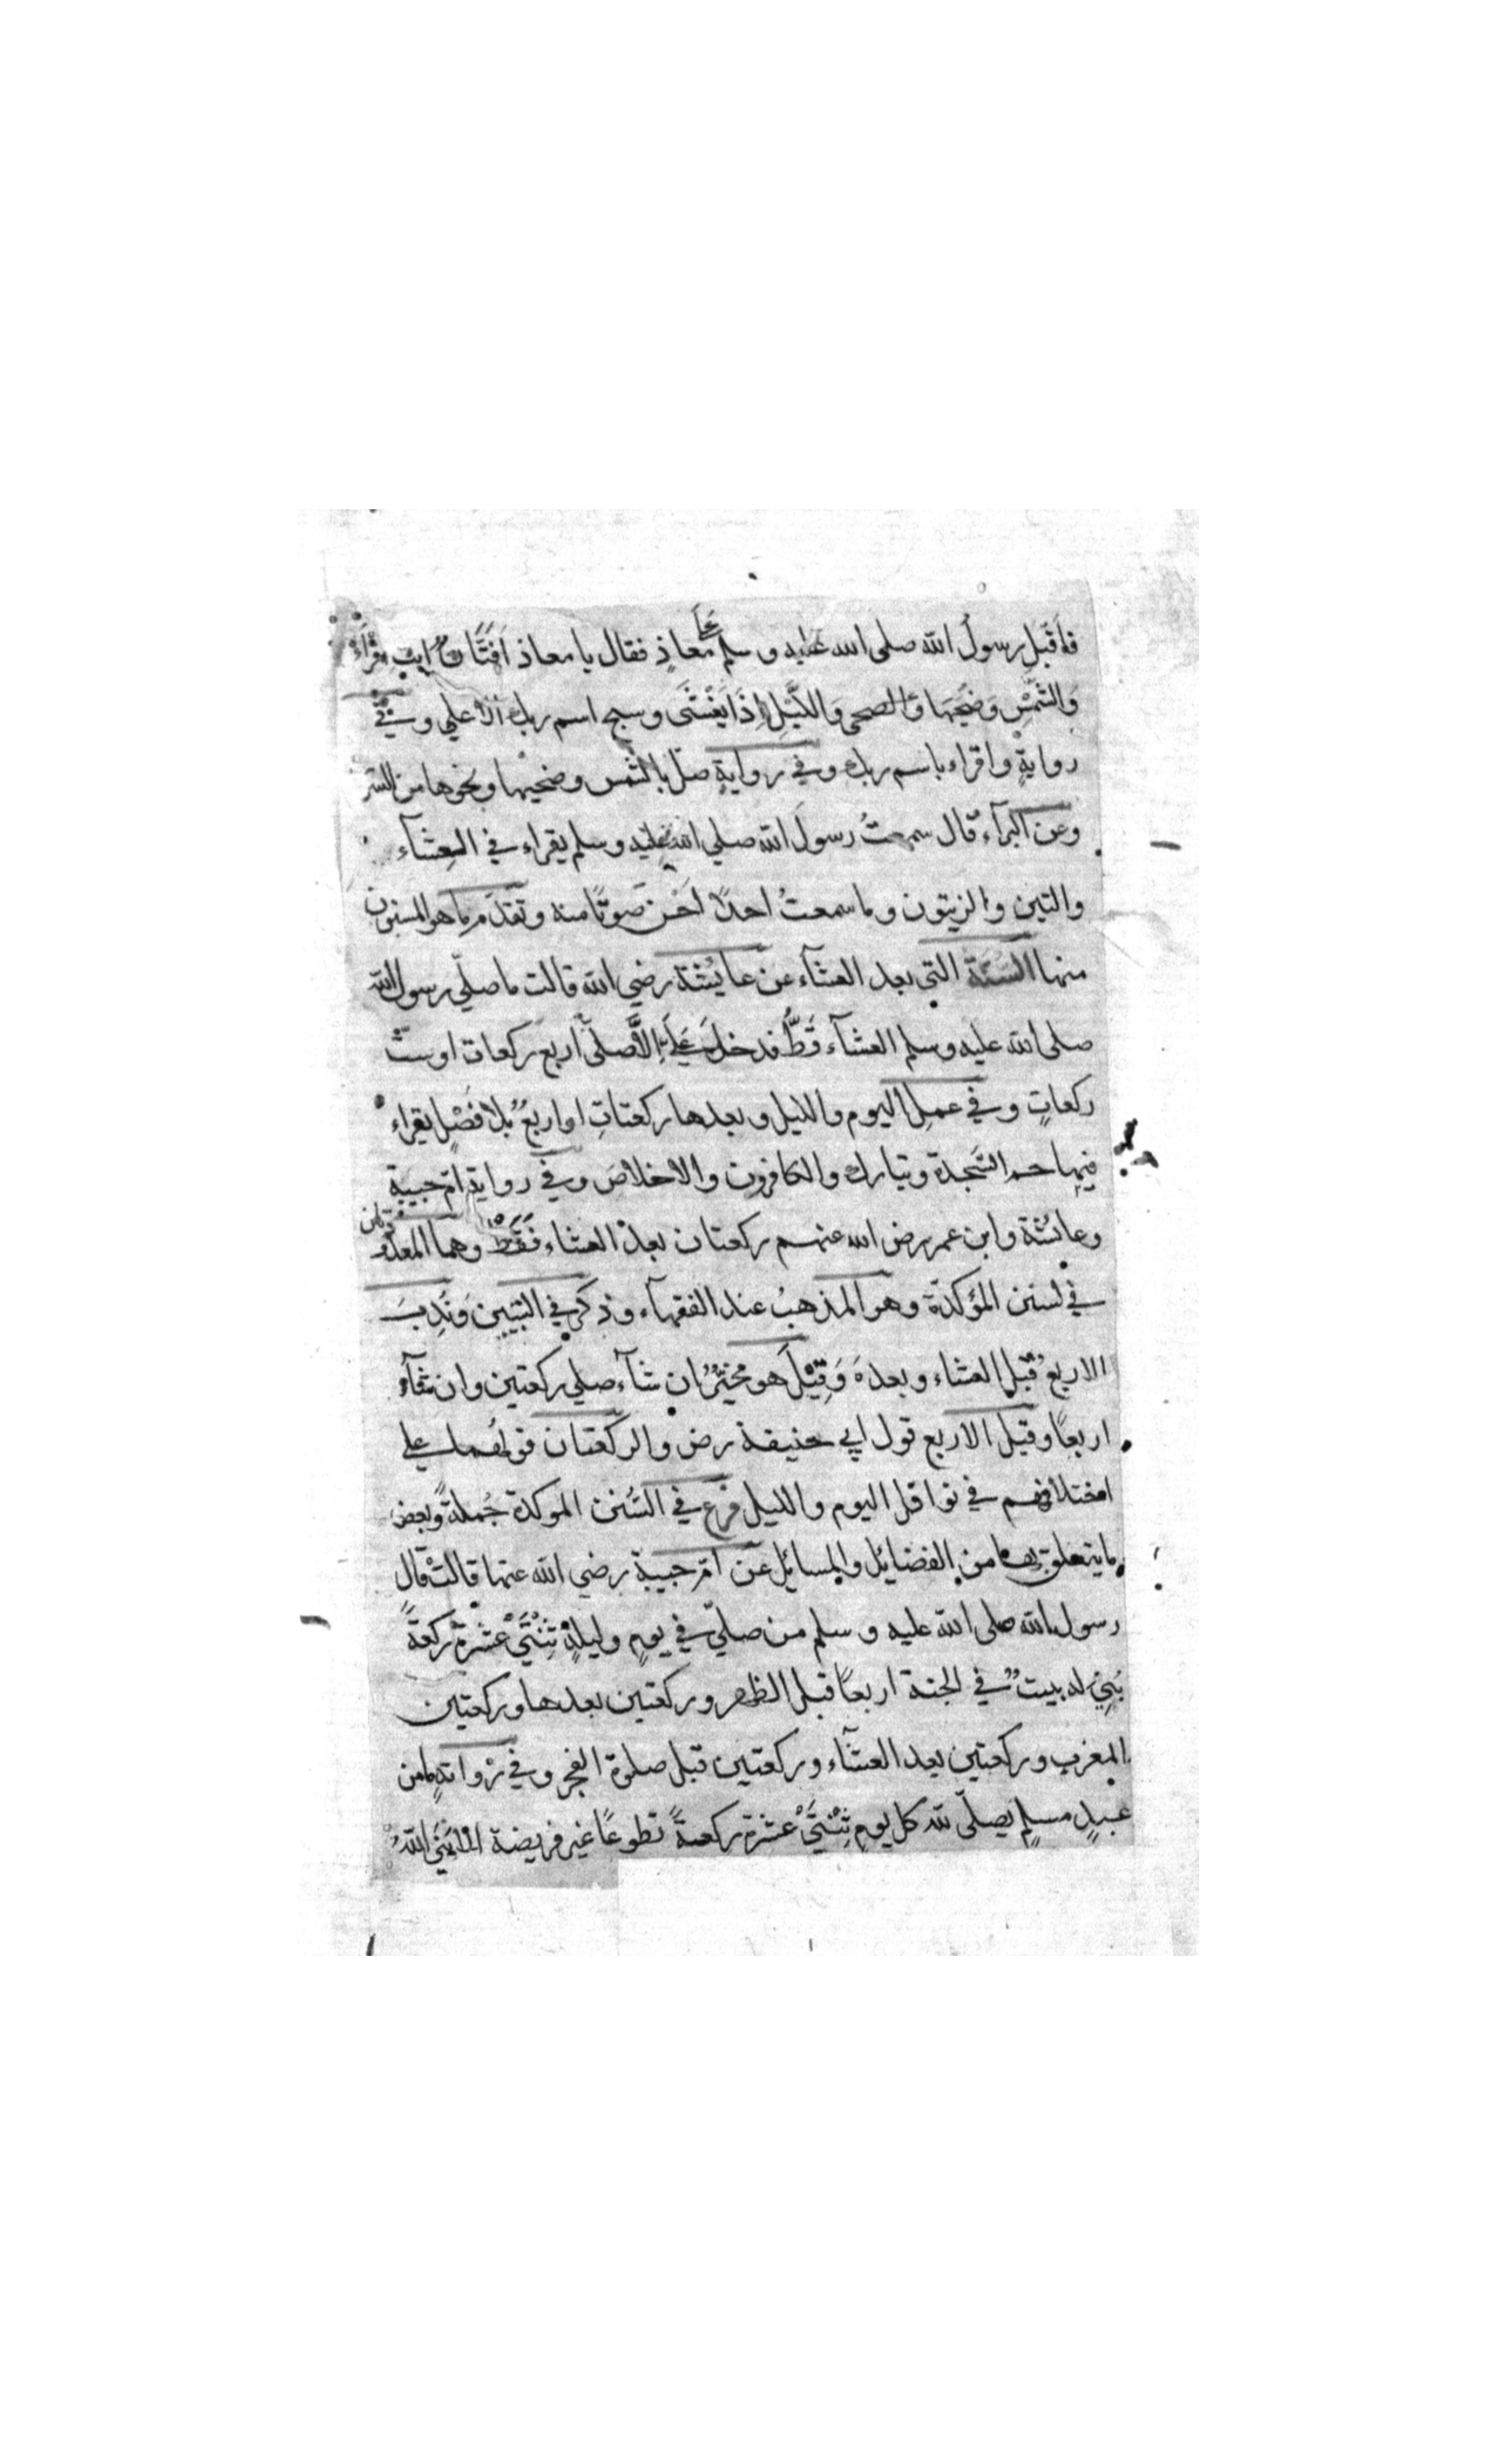 فاَقْبل رسولُ الله صلى الله عليه وسلم عَلَى معاذٍ فقال يا معاذ اَفَتَّانٌ انت اِقْرَاْ
وَالشَّمْسِ وَضُحَيهَا والضحى وَالَّليْلِ اِذَا يَغْشَى وسبح اسم ربك الاعلي وفي
روايةٍ واقراء باسم ربك وفي روايةٍ صلّ بالشمس وضحيها ونحوها من السّور
وعن البرآء قال سمعتُ رسولَ الله صلي الله عليه وسلم يقراء في العِشآء
والتين والزيتون وما سمعتُ احدًا اَحْسن صَوتًا منه وتقدّم ما هو المسنون
منها السُّنَّة التي بعد العشآء عن عايُشة رضي الله قالت ما صلّي رسول الله
صلى الله عليه وسلم العشآء قَطُّ فدخل عَلَيَّ اِلَّا صلّى اربع ركعات او ستّ
ركعاتٍ وفي عملِ اليوم والليل وبعدها ركعتانِ او اربعٌ بلا فَصْلٍ يقراء
فيها حم السَّجدة وتبارك والكافرون والاخلاصَ وفي رواية امّ حبيبة
وعائشة وابن عمر رض الله عنهم ركعتان بعدَ العشاء فَقَطْ وهما المعدودتان
في لسنن المؤكدّة وهو المذهبُ عند الفقهآء وذكر في التبيين وَنَدِبَ
الاربعُ قبل العشاء وبعدهَ وَقِيْلَ هو مخيّرٌ ان شآء صلي ركعتين وان شآء
اربعًا وقيل الاربع قول ابي حنيفة رض والركعتان قولهما علي
اختلافهم في نوافل اليوم والليل فرع في السُّنن الموكدة جُملةً وبعض
ما يتعلق بها من الفضايل والمسائل عن امّ حبيبة رضي الله عنها قالتْ قال
رسول الله صلى الله عليه وسلم من صلّي في يومٍ وليلةٍ ثِنْتَيْ عشرةَ ركعةً
بُنِيَ له بيتٌ في الجنة اربعًا قبل الظهر وركعتين بعدها وركعتين
المغرب وركعتين بعد العشآء وركعتين قبل صلوة الفجر وفي روايةٍ ما من
عبدٍ مسلمٍ يصلّى لله كل يومٍ ثِنْتَيْ عشرة ركعةً تطوعًا غير فريضة الّا بَنَي اللهُ